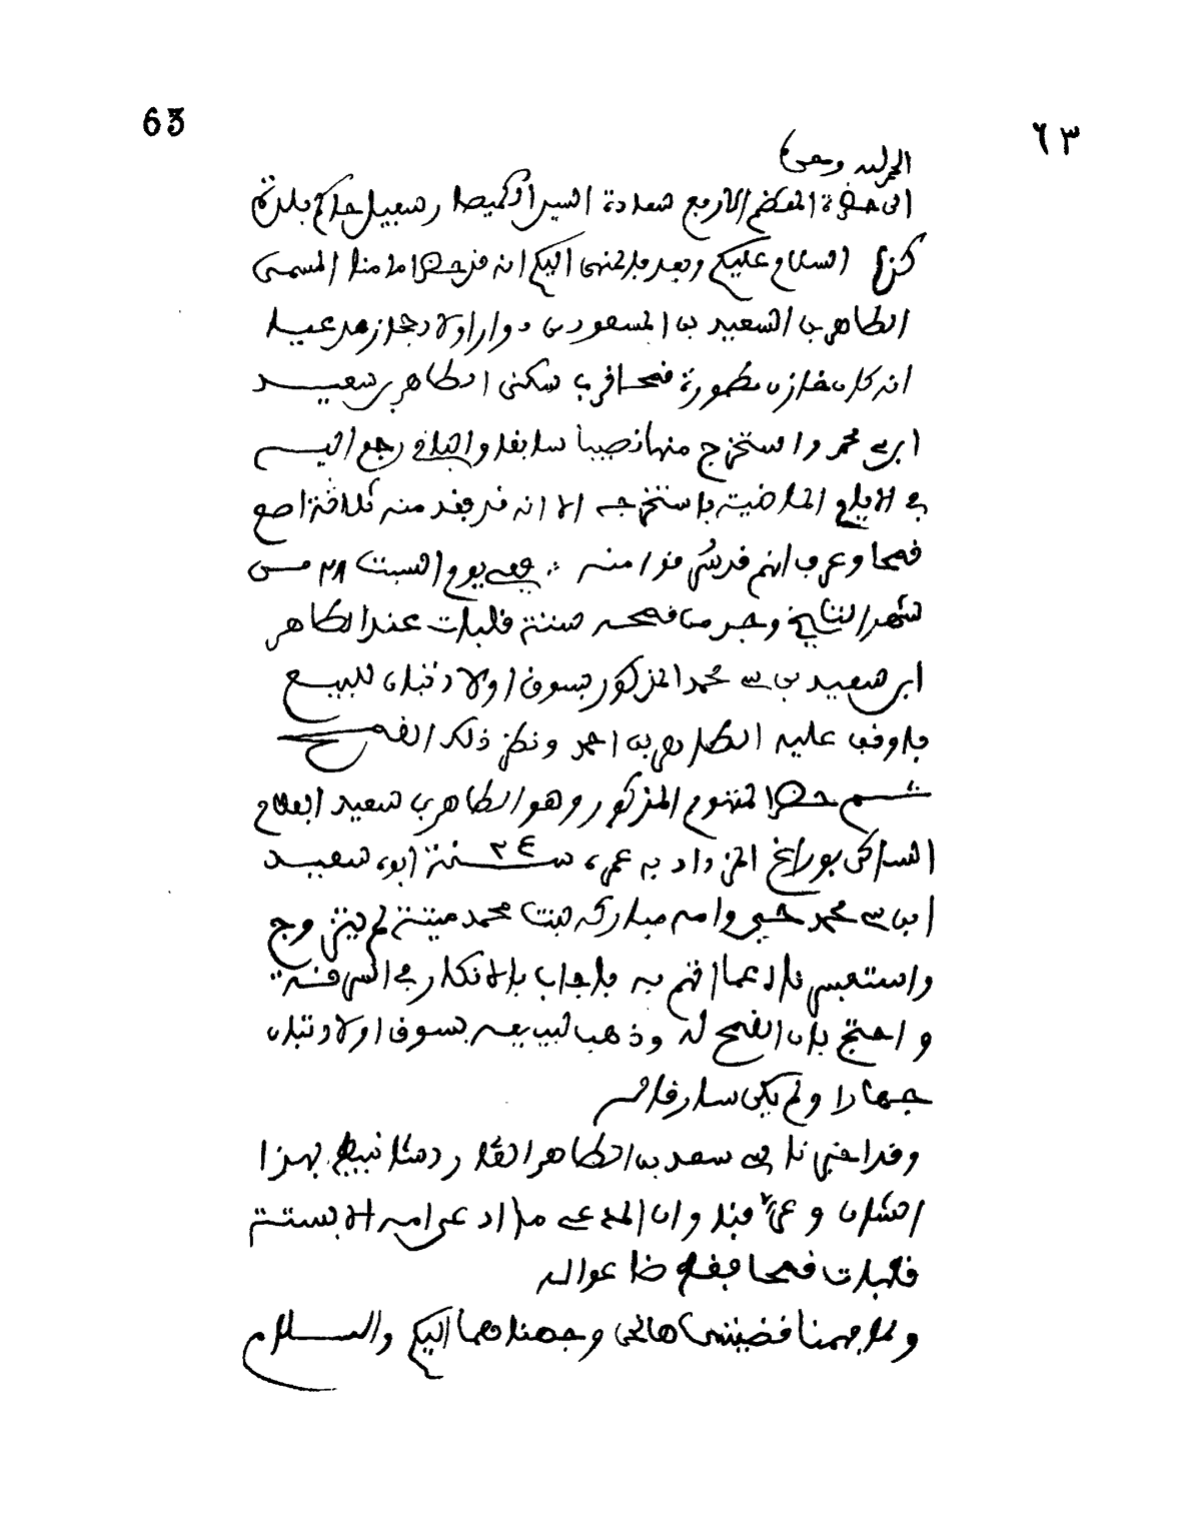 63
٦٣
الحمد لله وحده
الى حضرة المعظم الارفع سعادة السيد رسييل حاكم بلدة
كذا السلام عليكم وبعد فالمنهى اليكم انه قد حضر امامنا المسمى
الطاهر بن السعيد بن المسعود من دوار اولاد مدعيا
انه كان خازن مطمورة قمحا قرب سكنى الطاهر بن سعيد
ابن سي محمد واستخرج منها نصيبا سابقا والباقي رجع اليه
في الايام الماضية باستخرجه الا انه قد فقد منه ثلاثة اصع
قمحا وعرف انهم قد سرقوا منه ففي يوم السبت ٢٨ من
شهر التاريخ وجد من قمحه ستة قلبات عند الطاهر
ابن سعيد بن سي محمد المذكور بسوق اولاد تبان للبيع
فاوقف عليه الطاهر بن احمد ونظر ذلك القمح
ثم حضر المتهوم المذكور وهو الطاهر بن سعيد الفلاح
الساكن المزداد به عمره ٢٤ سنة ابوه سعيد
ابن سي محمد حي وامه مباركة بنت محمد ميتة لم يتزوج
واستفسرناه عما اتهم به فاجاب بالانكار في السرقة
واحتج بان القمح له وذهب ليبيعه بسوق اولاد تبان
جهارا ولم يكن سارقا
وقد اخبرنا سي سعد بن الطاهر بهذا
الشان وعرفنا وان المدعي ما ادعى امره الا بستة
قلبات قمحا فقط
ولما فهمنا قضيتهما هاتي وجهناهما اليكم والسلام